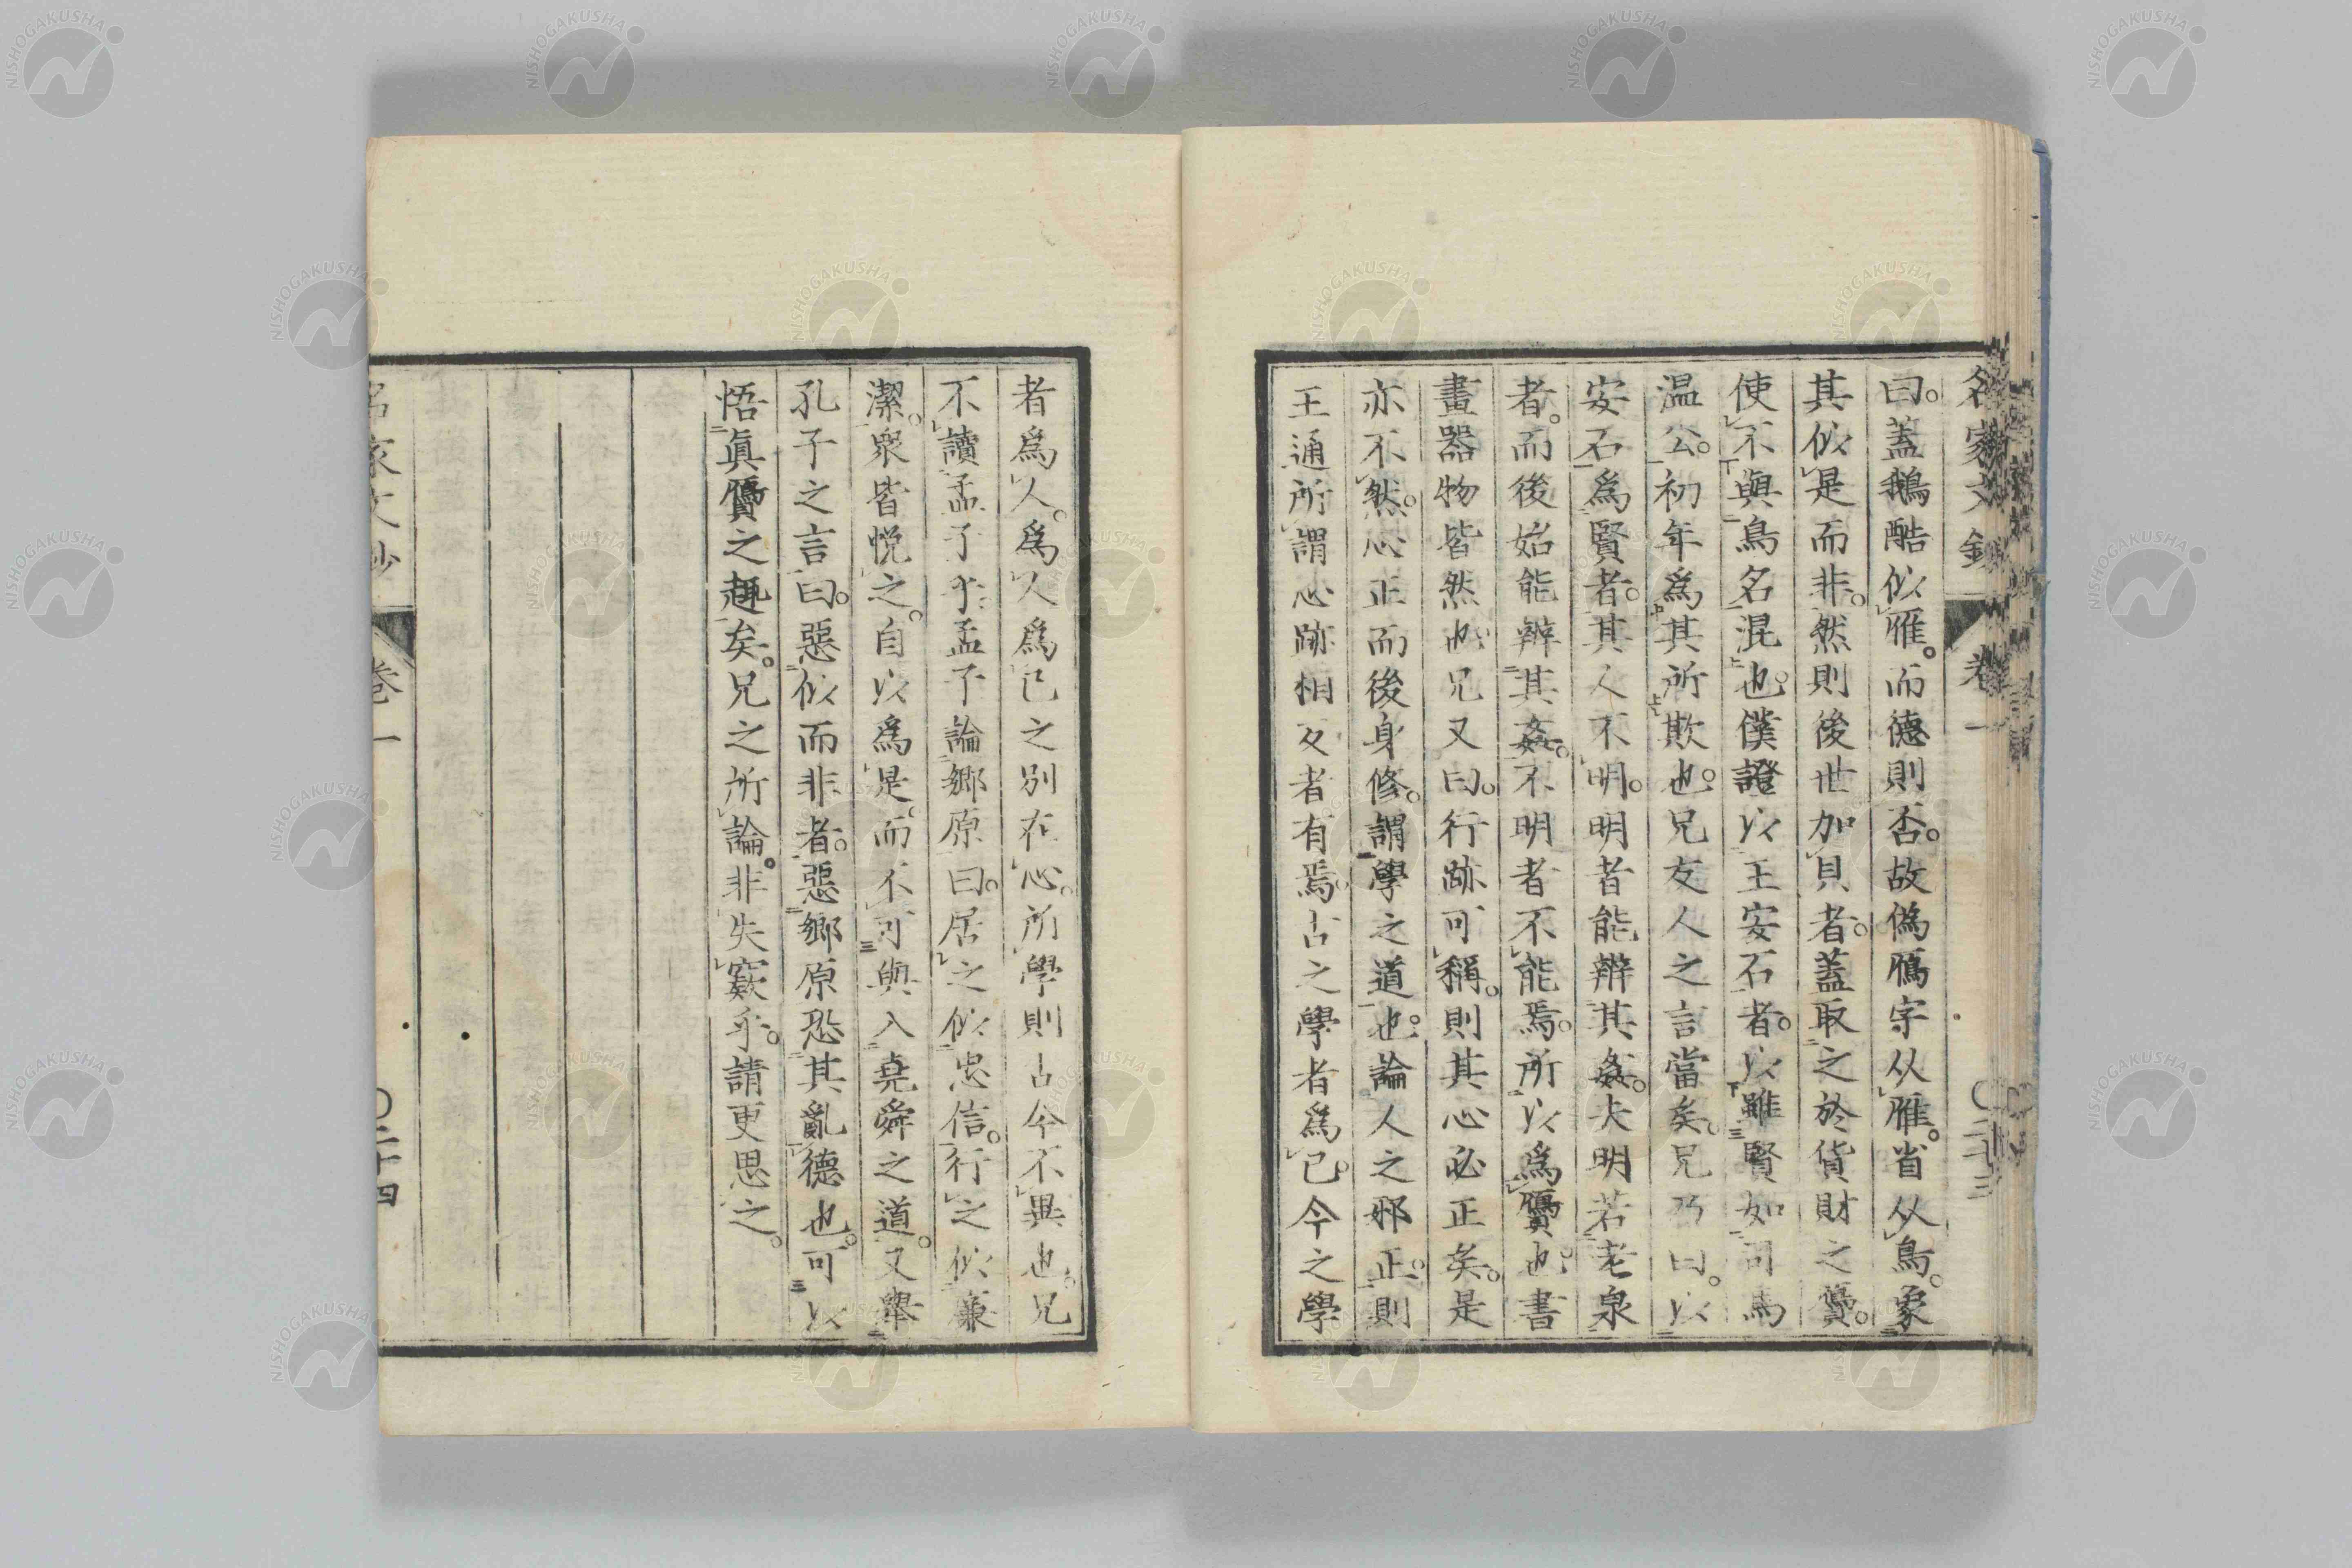 名家文鈔 卷一 〇二十三
曰。蓋鵝酷似雁。而德則否。故僞鴈字从雁。省从鳥。象
其似是而非。然則後世加貝者。蓋取之於貨財之贗。
使不與鳥名混也。僕證以王安石者。以雖賢如司馬
温公。初年爲其所欺也。兄友人之言當矣。兄乃曰。以
安石爲賢者。其人不明。明者能辨其姦。夫明若老泉
者。而後始能辨其姦。不明者不能焉。所以爲贗也。書
畫器物皆然也。兄又曰。行跡可稱。則其心必正矣。是
亦不然。心正而後身修。謂學之道也。論人之邪正。則
王通所謂心跡相反者有焉。古之學者爲己。今之學
者爲人。爲人爲己之別在心。所學則古今不異也。兄
不讀孟子乎。孟子論鄉原曰。居之似忠信。行之似廉
潔。衆皆悦之。自以爲是。而不可與入堯舜之道。又擧
孔子之言曰。惡似而非者。惡鄉原恐其亂德也。可以
悟眞贗之趣矣。兄之所論。非失窾乎。請更思之。
名家文鈔 卷一 〇二十四
NISHOGAKUSHA